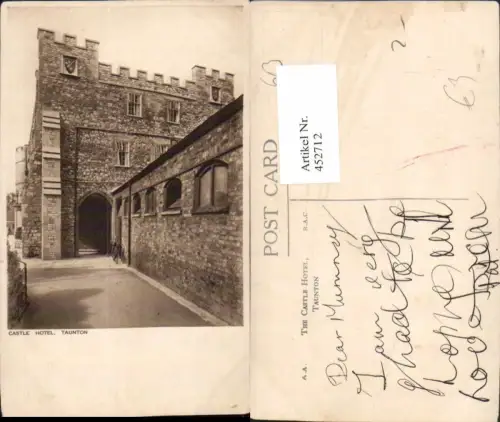 CASTLE HOTEL, TAUNTON
POST CARD
Artikel Nr.
452712
63
2-
63
A.A. THE CASTLE HOTEL, R.A.C.
TAUNTON
Dear Mummy
I am very
glad to be
love from